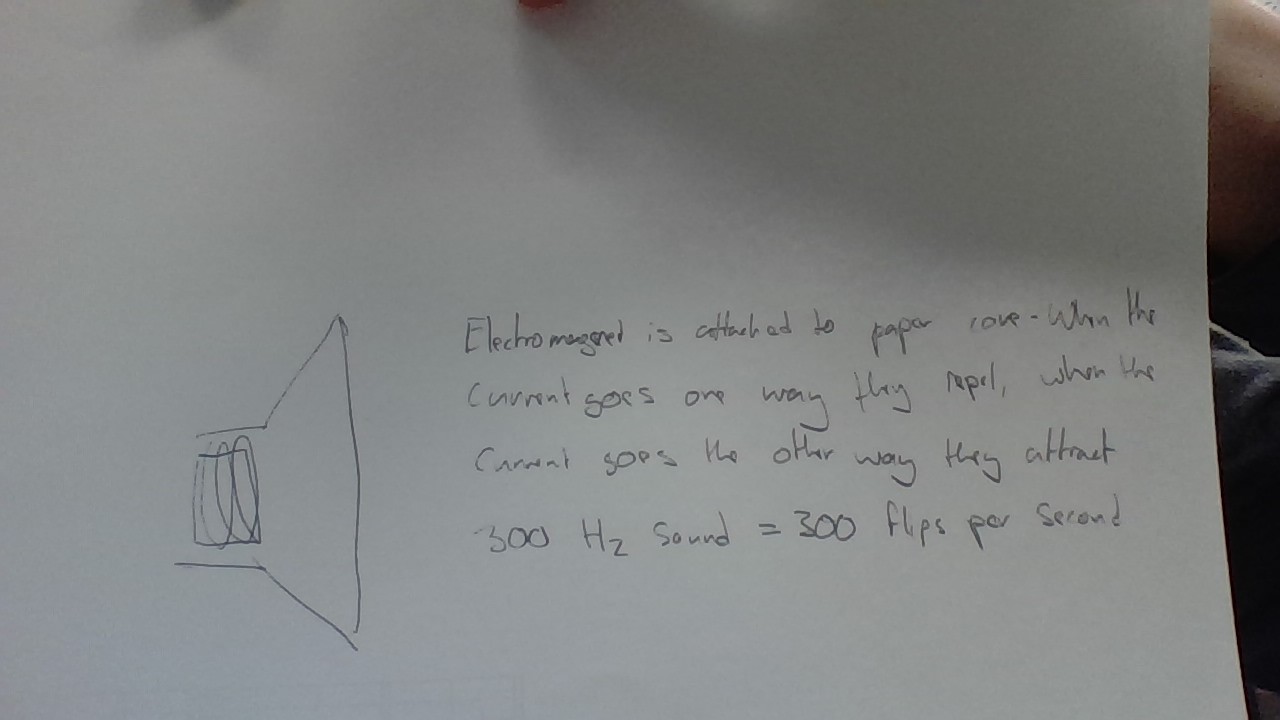 Electromagned is attached to paper cone - When the
Current goes one way they repel, when the
Current goes the other way they attract
300 Hz Sound = 300 flips per second